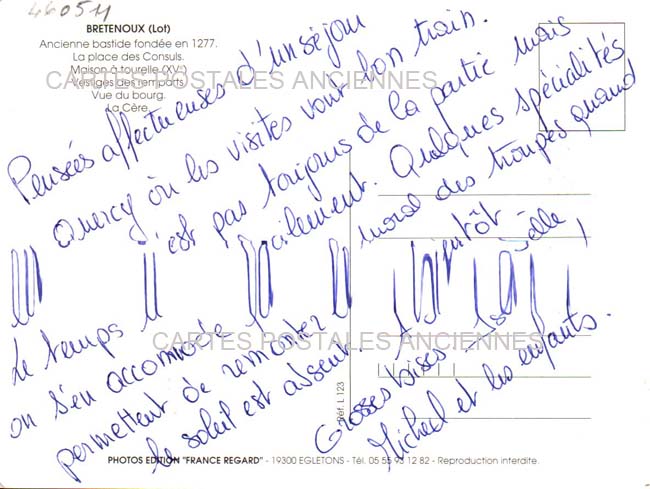 46051
BRETENOUX (Lot)
Ancienne bastide fondée en 1277.
La place des Consuls.
Maison à tourelle (XVe)
Vestiges des remparts.
Vue du bourg.
La Cère.
CARTES POSTALES ANCIENNES
Pensées affectueuses d'un séjour
Quercy où les visites vont bon train.
Le temps n'est pas toujours de la partie mais
on s'en accommode facilement. Quelques spécialités
permettent de remonter le moral des troupes quand
le soleil est absent. A bientôt
Grosses bises
Michel et les enfants.
CARTES POSTALES ANCIENNES
Réf. L 123
PHOTOS EDITION "FRANCE REGARD" - 19300 EGLETONS - Tél. 05 55 93 12 82 - Reproduction interdite.